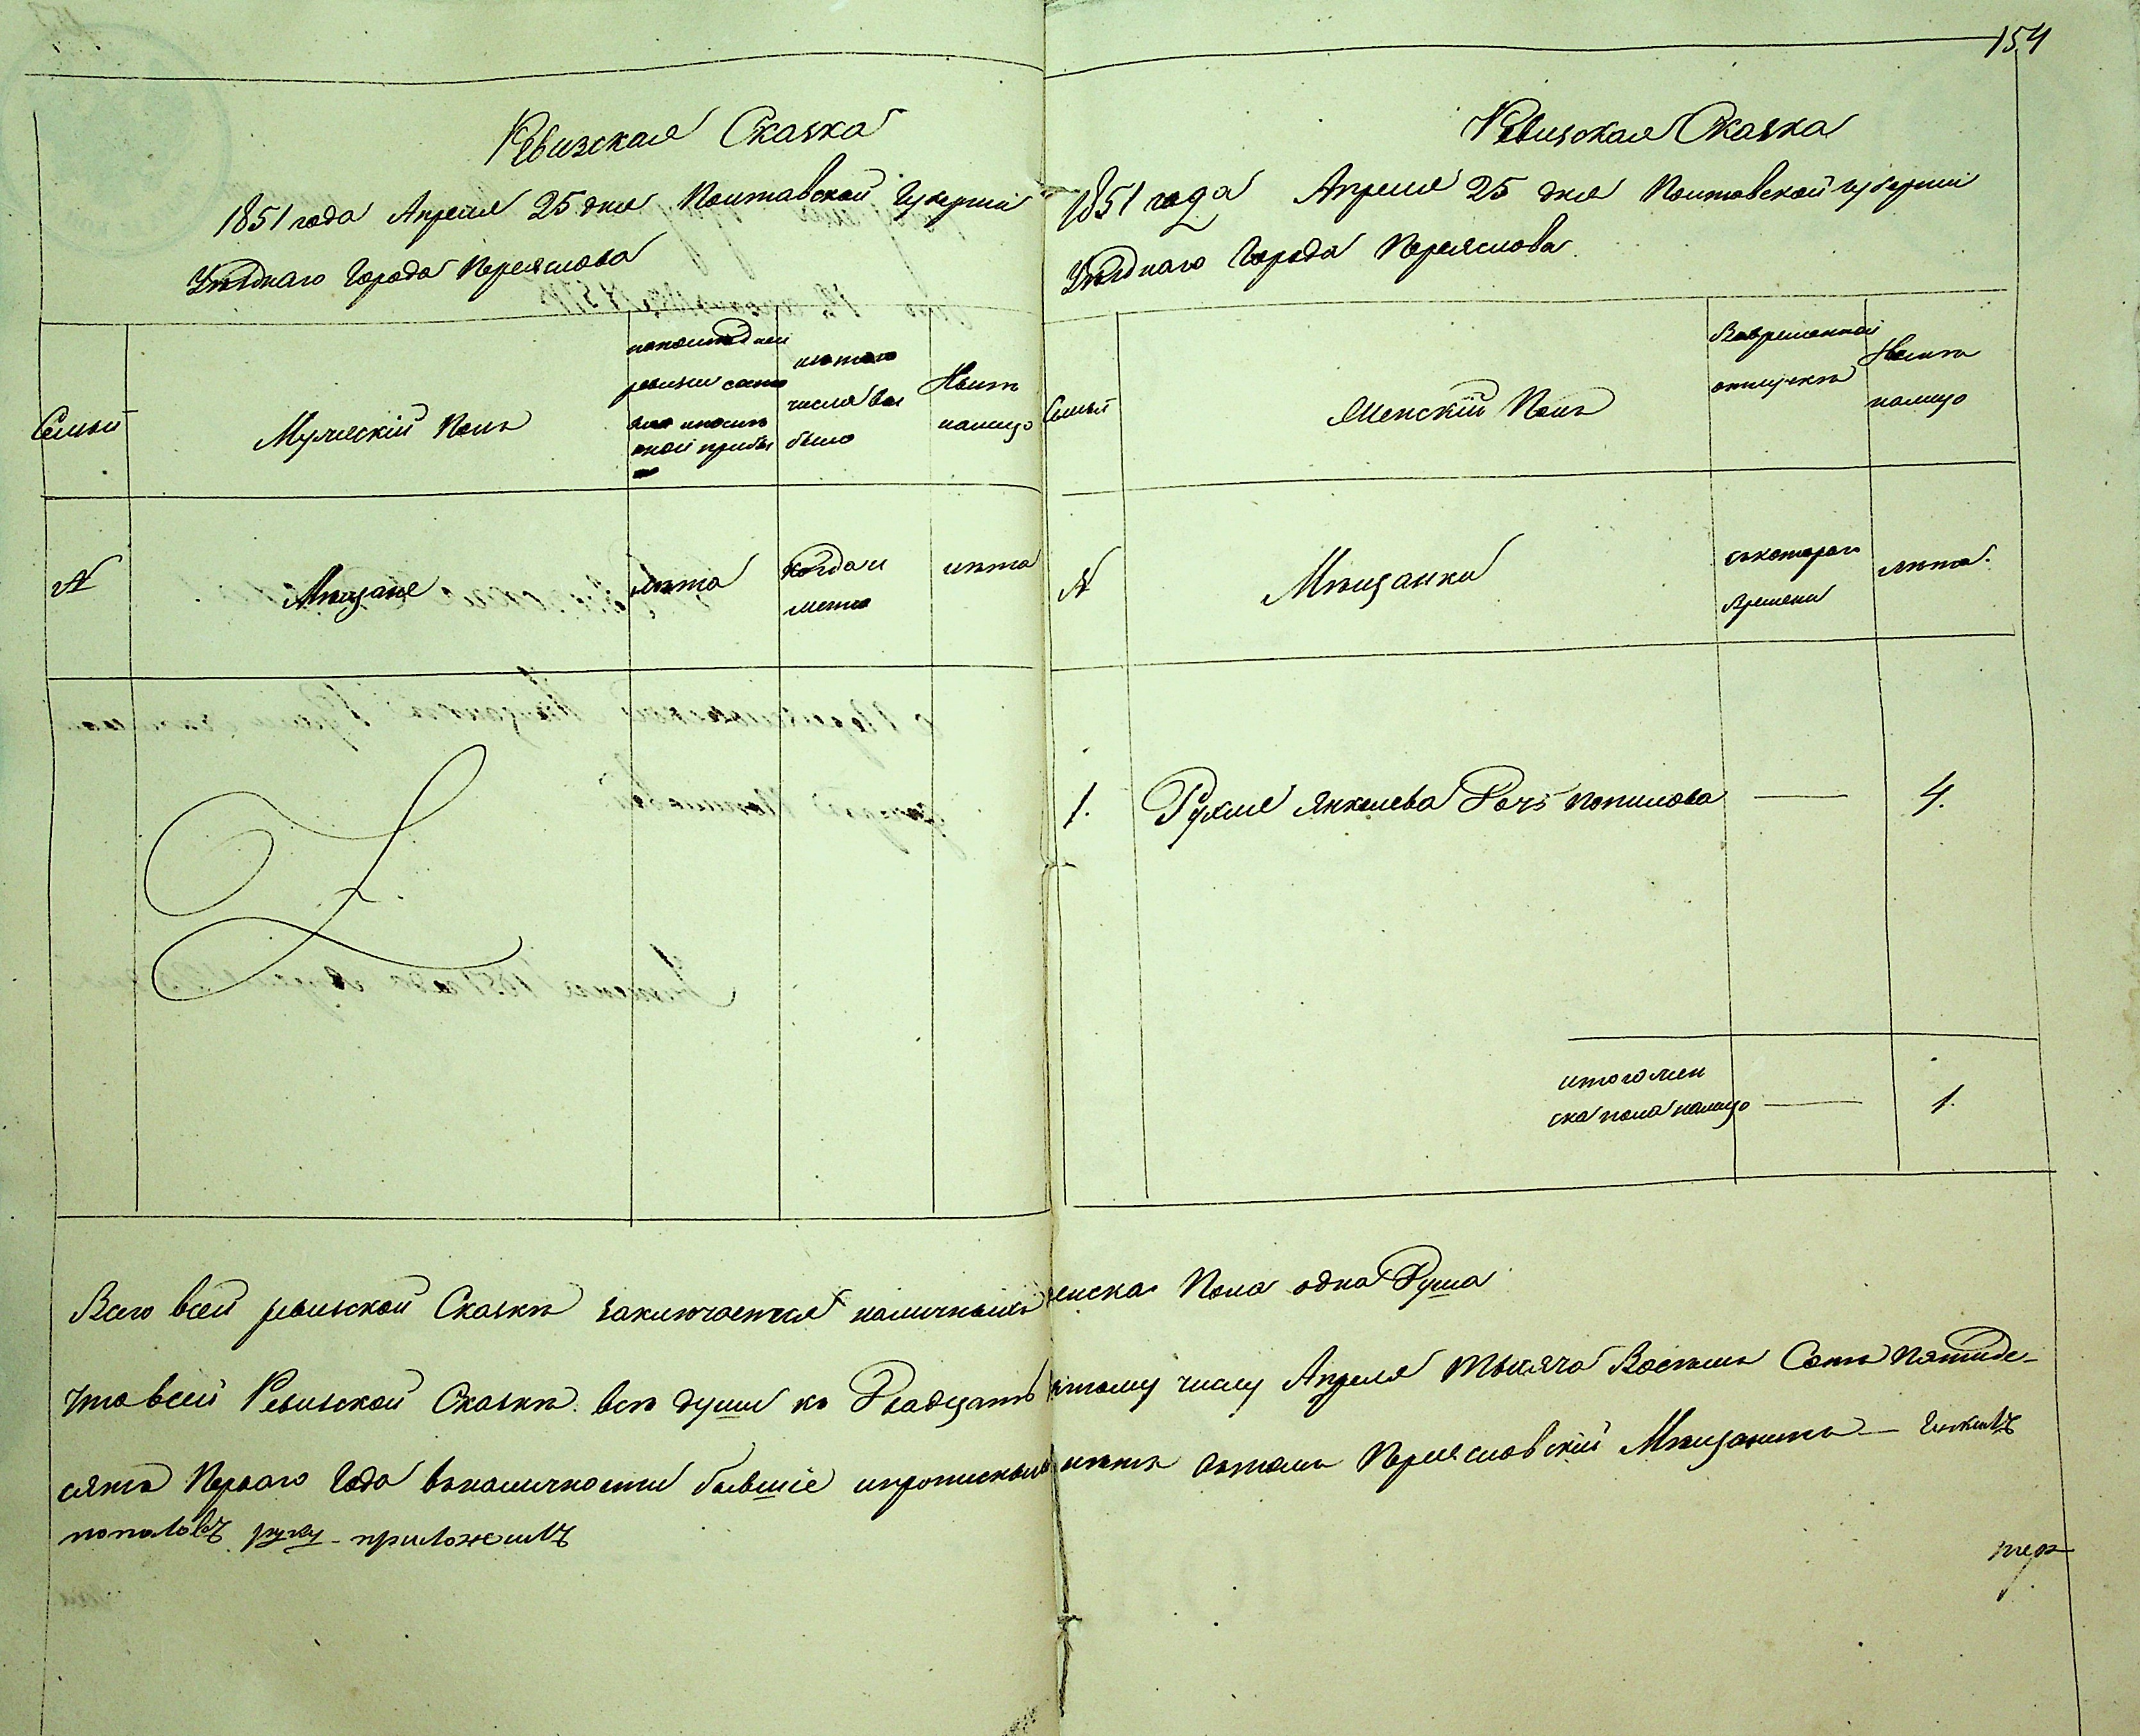 154
Ревизская Сказка
1851 года Апреля 25 дня Полтавской Губернии
Уѣзднаго Города Переяслова
Семьи
Мужескій Полъ
по последней
ревизии состо
было
Нынѣ
налицо
№
Мѣщане
лѣта
когда и
лѣта
Ревизская Сказка
1851 года Апреля 25 дня Полтавской губернии
Уѣзднаго Города Переяслова
Семьи
Женскій Полъ
Вовременной
отлучкѣ
Нынѣ
налицо
№
Мѣщанки
съкотораго
времени
лѣта.
1. Рухля Янкелева Дочь Попилова — 4.
итого жен
ска пола налицо — 1.
Всего всей ревизской Сказкѣ заключается наличныхъ женска Пола одна Душа
Что всей Ревизской Сказкѣ всѣ души къ Двадцать пятому числу Апреля Тысяча Восемь Сотъ Пятиде-
сятъ Перваго Года въналичности бывшіе Переясловскій Мѣщанинъ —
руку - приложилъ